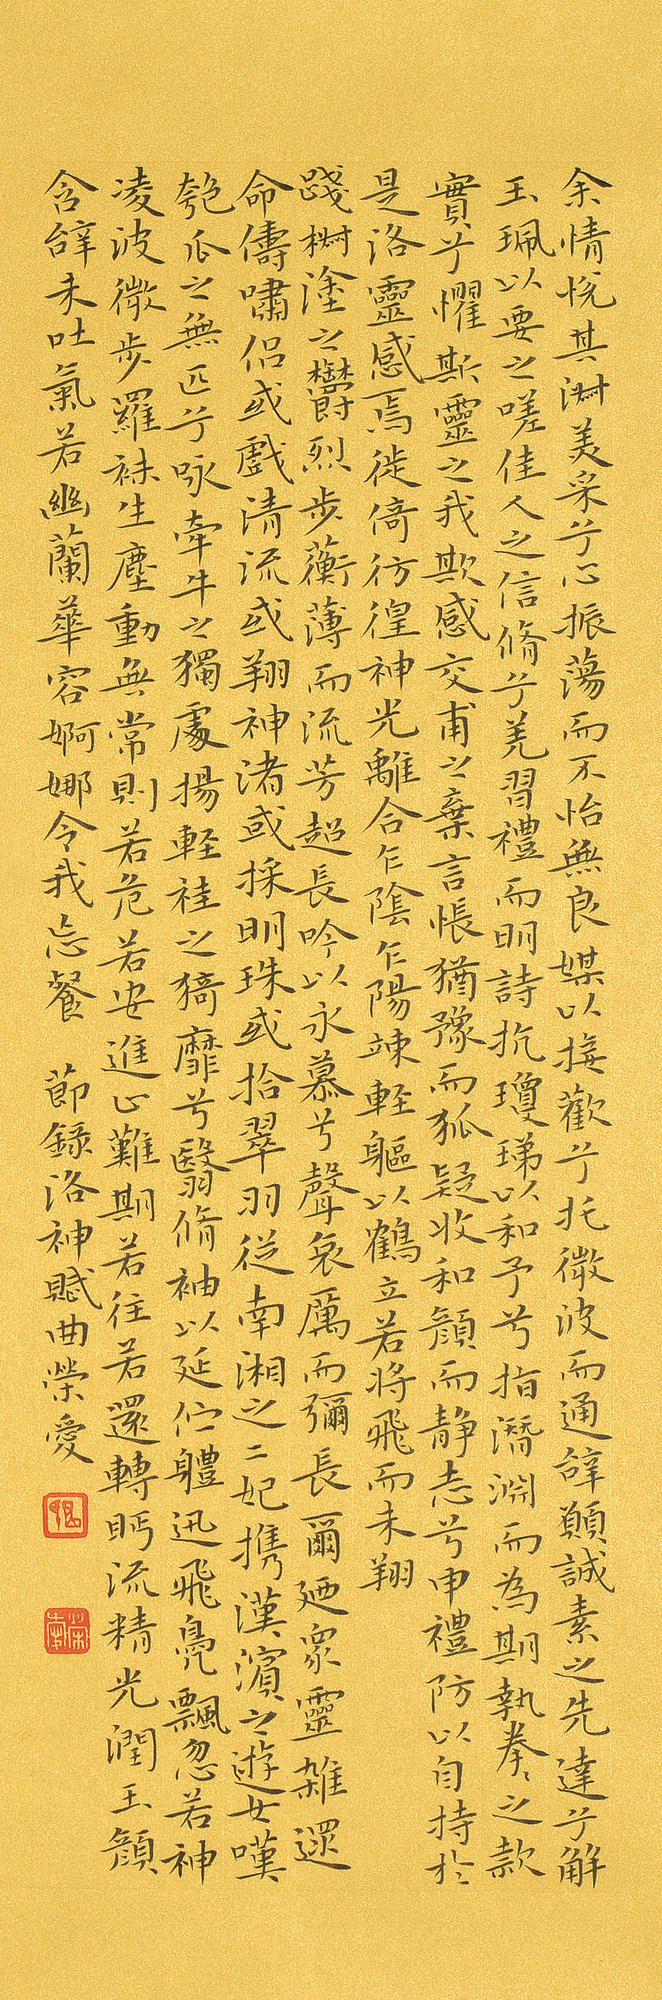 余情悅其淑美采兮心振蕩而不怡無良媒以接歡兮托微波而通辭願誠素之先達兮解
玉珮以要之嗟佳人之信脩兮羌習禮而明詩抗瓊珶以和予兮指潛淵而為期執拳〻之款
實兮懼斯靈之我欺感交甫之棄言悵猶豫而狐疑收和顏而静志兮申禮防以自持於
是洛靈感焉徙倚彷徨神光離合乍陰乍陽竦軽軀以鶴立若將飛而未翔
踐椒塗之鬱烈步蘅薄而流芳超長吟以永慕兮聲哀厲而彌長爾廼衆靈雜遝
命儔嘯侶或戲清流或翔神渚或採明珠或拾翠羽從南湘之二妃携漢濱之遊女嘆
匏瓜之無匹兮咏牽牛之獨處揚軽袿之猗靡兮翳脩袖以延佇體迅飛鳧飄忽若神
凌波微步羅袜生塵動無常則若危若安進止難期若往若還轉眄流精光潤玉顏
含辭未吐氣若幽蘭華容婀娜令我忘餐 節錄洛神賦曲榮愛